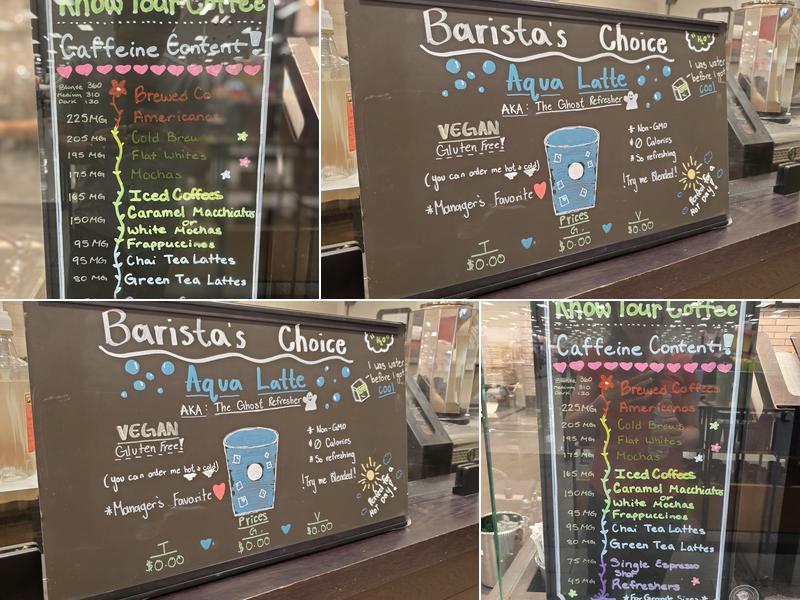 Know Your Coffee
Caffeine Content!
Blonde 360
Medium 310
Dark 130
Brewed Co
225MG Americanos
205 MG Cold Brew
195 MG Flat Whites
175 MG Mochas
165 MG Iced Coffees
150MG Caramel Macchiatos
or
White Mochas
95 MG Frappuccinos
95 MG Chai Tea Lattes
80 MG Green Tea Lattes
Barista's Choice
"H₂O"
Aqua Latte
AKA: The Ghost Refresher
I was water
before I got
COOL
VEGAN
Gluten Free!
(you can order me hot & cold)
*Manager's Favorite
* Non-GMO
* 0 Calories
* So refreshing
!Try me Blended!
Perfect for a
Hot Day!
Prices
T G V
$0.00 $0.00 $0.00
Barista's Choice
"H₂O"
Aqua Latte
AKA: The Ghost Refresher
I was water
before I got
COOL
VEGAN
Gluten Free!
(you can order me hot & cold)
*Manager's Favorite
* Non-GMO
* 0 Calories
* So refreshing
!Try me Blended!
Perfect for a
Hot Day!
Prices
T G V
$0.00 $0.00 $0.00
Know Your Coffee
Caffeine Content!
Blonde 360
Medium 310
Dark 130
Brewed Coffees
225MG Americanos
205 MG Cold Brews
195 MG Flat Whites
175 MG Mochas
165 MG Iced Coffees
150MG Caramel Macchiatos
or
White Mochas
95 MG Frappuccinos
95 MG Chai Tea Lattes
80 MG Green Tea Lattes
75 MG Single Espresso
Shot
45 MG Refreshers
*For Grande Sizes*